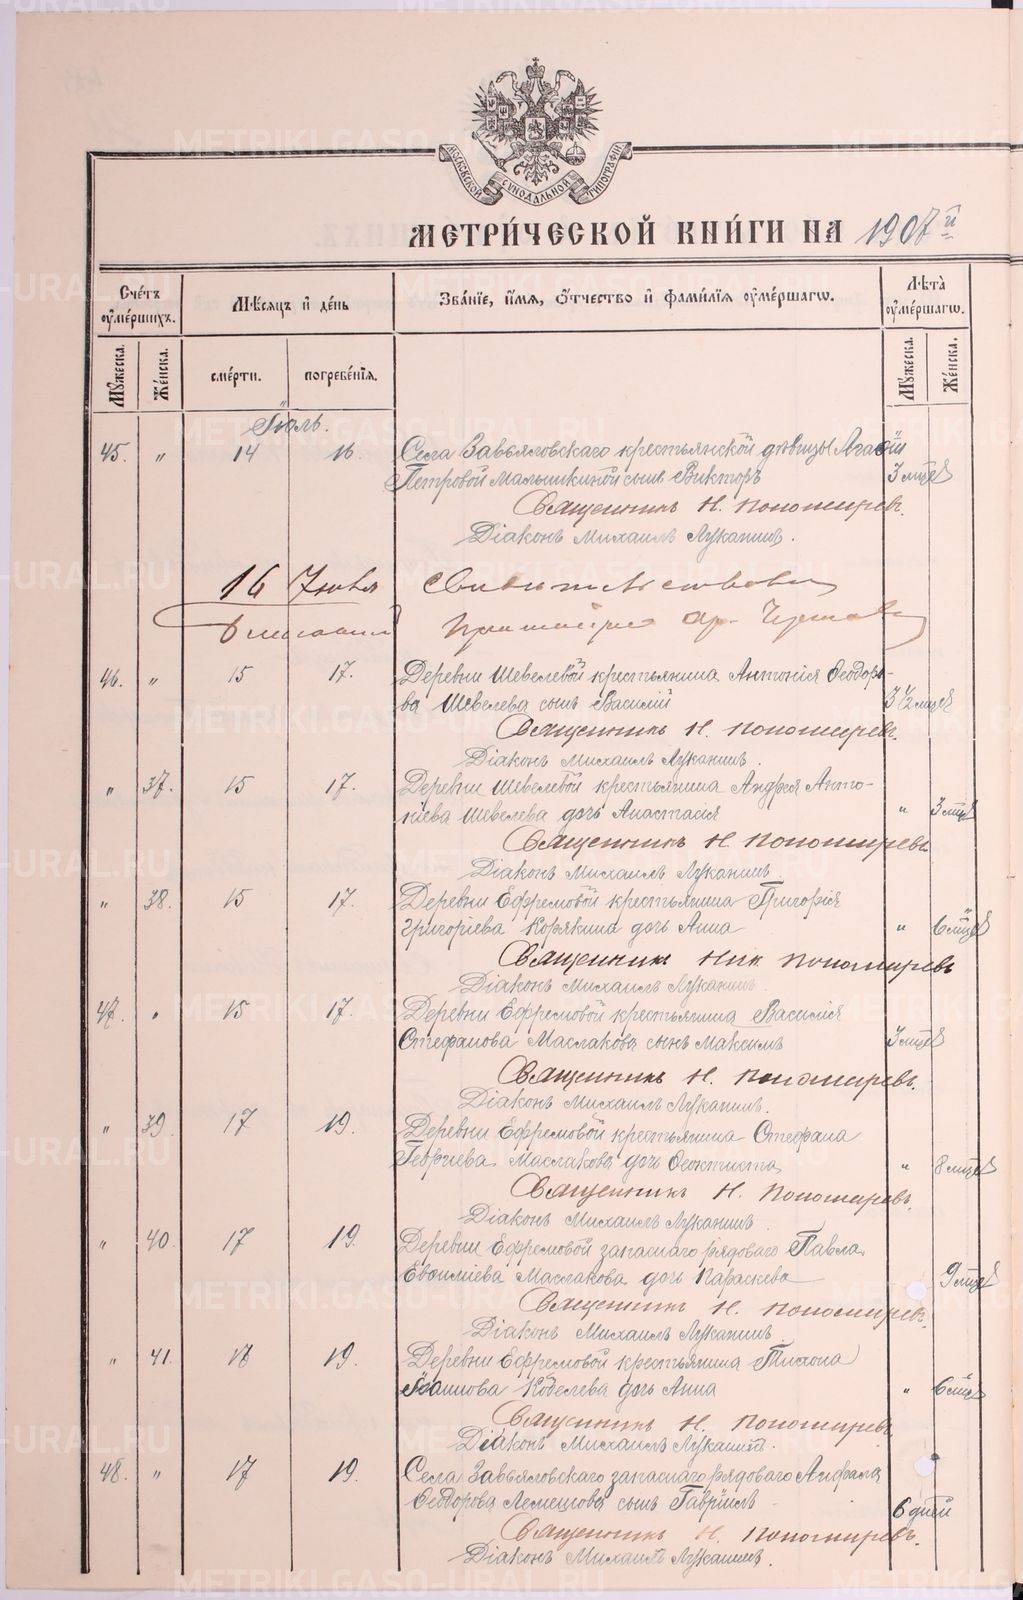 МОСКОВСКОЙ СѴНОДАЛЬНОЙ ТИПОГРАФІИ
МЕТРИ́ЧЕСКОЙ КНИ́ГИ НА 1907й
Сче́тъ оу҆ме́ршихъ.
Мѣ́сяцъ и҆ де́нь
Зва́ніе, и҆́мя, ѻ҆́тчество и҆ фами́лія оу҆ме́ршагѡ.
Лѣ́та оу҆ме́ршагѡ.
Мꙋ́жеска.
Же́нска.
сме́рти.
погребе́нія.
Мꙋ́жеска.
Же́нска.
Іюль.
45. " 14 16. Села Завьяловскаго крестьянской дѣвицы Агаѳіи
Петровой Малышкиной сынъ Викторъ 3 мцѣ
Священникъ Н. Пономаревъ.
Діаконъ Михаилъ Луканинъ.
16 Іюля Свидѣтельствовалъ
46. " 15 17. Деревни Шевелевой крестьянина Антонія Ѳеодоро-
ва Шевелева сынъ Василій 3 1/2 мцѣ
Священникъ Н. Пономаревъ.
Діаконъ Михаилъ Луканинъ.
" 37. 15 17. Деревни Шевелевой крестьянина Андрея Анто-
ніева Шевелева дочь Анастасія " 3 мцѣ
Священникъ Н. Пономаревъ
Діаконъ Михаилъ Луканинъ.
" 38. 15 17. Деревни Ефремовой крестьянина Григорія
Григоріева Корякина дочь Анна " 6 мцѣ
Священникъ Ник. Пономаревъ
Діаконъ Михаилъ Луканинъ.
47. " 15 17. Деревни Ефремовой крестьянина Василія
Стефанова Маслакова сынъ Максимъ 3 мцѣ
Священникъ Н. Пономаревъ.
Діаконъ Михаилъ Луканинъ.
" 39. 17 19. Деревни Ефремовой крестьянина Стефана
Георгіева Маслакова дочь Ѳеоктиста " 8 мцѣ
Священникъ Н. Пономаревъ.
Діаконъ Михаилъ Луканинъ.
" 40. 17 19. Деревни Ефремовой запаснаго рядоваго Павла
Маслакова дочь Параскева 9 мцѣ
Священникъ Н. Пономаревъ.
Діаконъ Михаилъ Луканинъ.
" 41. 18 19. Деревни Ефремовой крестьянина Тихона
Іоаннова Кобелева дочь Анна " 6 мцѣ
Священникъ Н. Пономаревъ.
Діаконъ Михаилъ Луканинъ.
48. " 17 19. Села Завьяловскаго запаснаго рядоваго
Ѳеодорова Лемешова сынъ Гавріилъ 6 дней
Священникъ Н. Пономаревъ.
Діаконъ Михаилъ Луканинъ.
METRIKI.GASO-URAL.RU